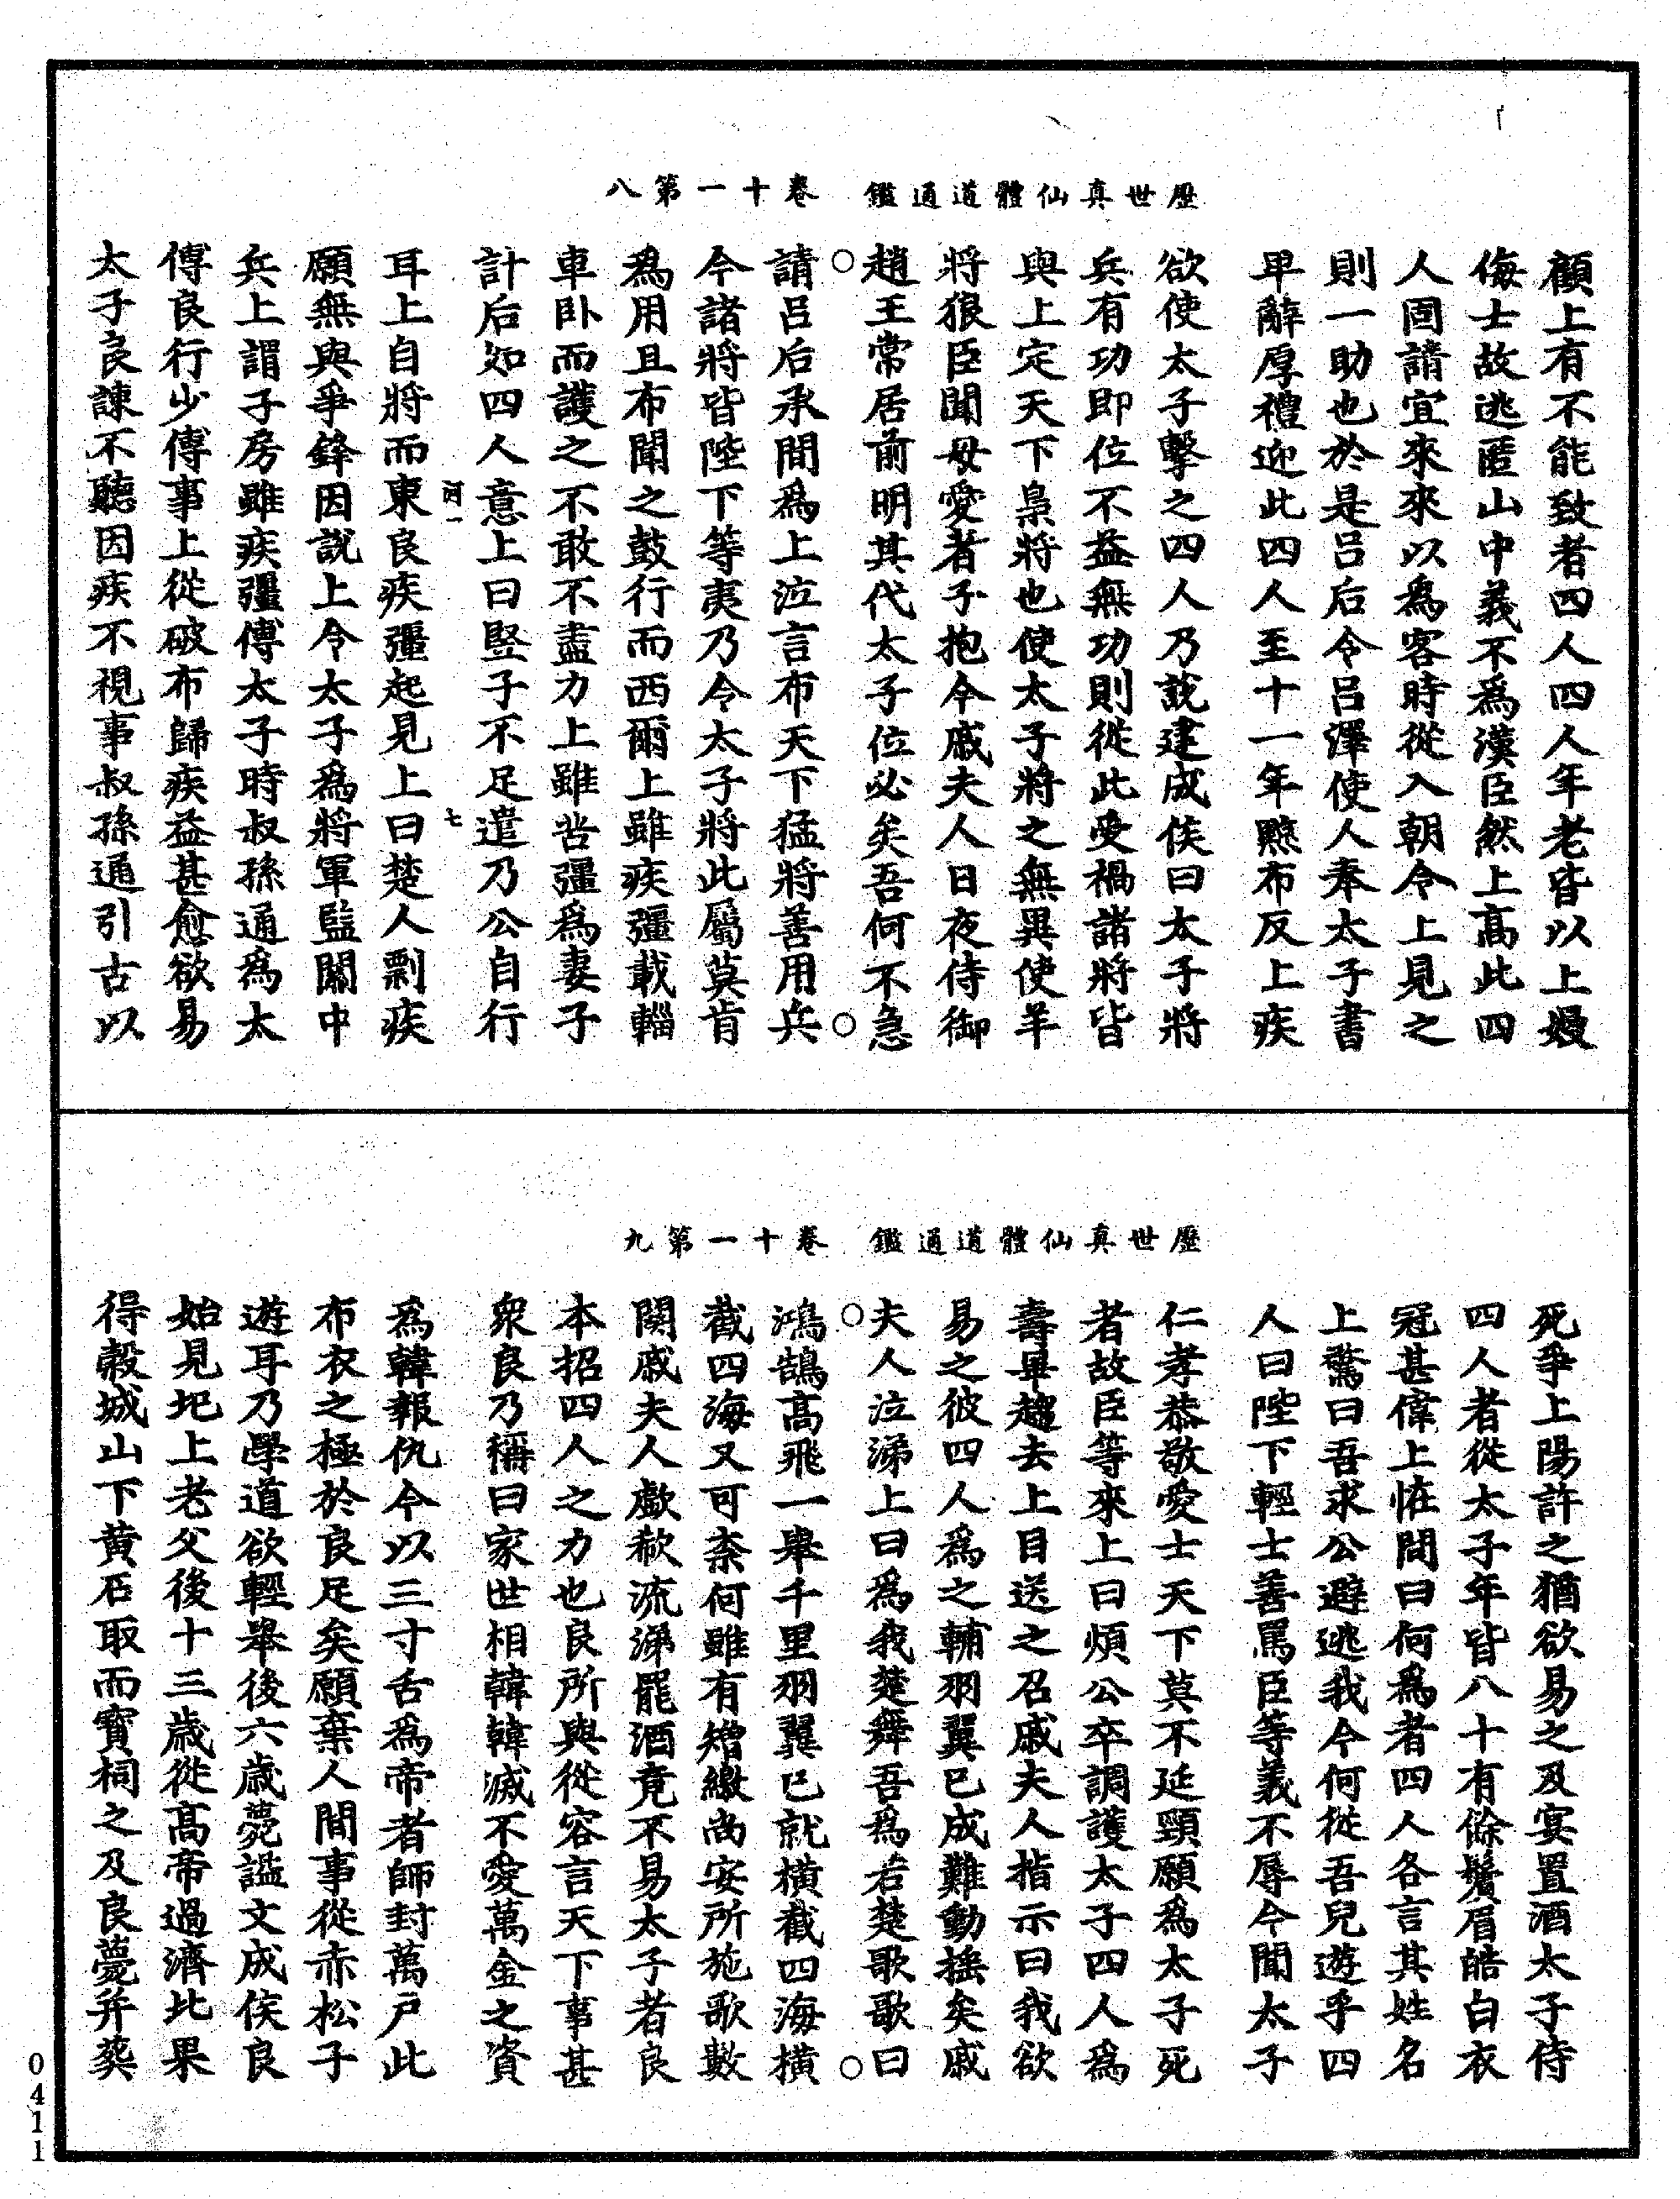 歷世真仙體道通鑑　卷十一第八
顧上有不能致者四人四人年老皆以上嫚
侮士故逃匿山中義不為漢臣然上高此四
人固請宜來來以為客時從入朝令上見之
則一助也於是呂后令呂澤使人奉太子書
卑辭厚禮迎此四人至十一年黥布反上疾
欲使太子擊之四人乃說建成侯曰太子將
兵有功即位不益無功則從此受禍諸將皆
與上定天下梟將也使太子將之無異使羊
將狼臣聞母愛者子抱今戚夫人日夜侍御
趙王常居前明其代太子位必矣吾何不急
請呂后承間為上泣言布天下猛將善用兵
今諸將皆陛下等夷乃令太子將此屬莫肯
為用且布聞之鼓行而西爾上雖疾彊載輜
車卧而護之不敢不盡力上雖苦彊為妻子
計后如四人意上曰竪子不足遣乃公自行
河一
七
耳上自將而東良疾彊起見上曰楚人剽疾
願無與爭鋒因說上令太子為將軍監關中
兵上謂子房雖疾彊傅太子時叔孫通為太
傅良行少傅事上從破布歸疾益甚愈欲易
太子良諫不聽因疾不視事叔孫通引古以
歷世真仙體道通鑑　卷十一第九
死爭上陽許之猶欲易之及宴置酒太子侍
四人者從太子年皆八十有餘鬚眉皓白衣
冠甚偉上恠問曰何為者四人各言其姓名
上驚曰吾求公避逃我今何從吾兒遊乎四
人曰陛下輕士善罵臣等義不辱今聞太子
仁孝恭敬愛士天下莫不延頸願為太子死
者故臣等來上曰煩公卒調護太子四人為
壽畢趨去上目送之召戚夫人指示曰我欲
易之彼四人為之輔羽翼已成難動搖矣戚
夫人泣涕上曰為我楚舞吾為若楚歌歌曰
鴻鵠高飛一舉千里羽翼已就橫截四海橫
截四海又可柰何雖有矰繳尚安所施歌數
闋戚夫人歔欷流涕罷酒竟不易太子者良
本招四人之力也良所與從容言天下事甚
衆良乃稱曰家世相韓韓滅不愛萬金之資
為韓報仇今以三寸舌為帝者師封萬戶此
布衣之極於良足矣願棄人間事從赤松子
遊耳乃學道欲輕舉後六歲薨謚文成侯良
始見圯上老父後十三歲從高帝過濟北果
得榖城山下黃石取而寳祠之及良薨并葬
0411